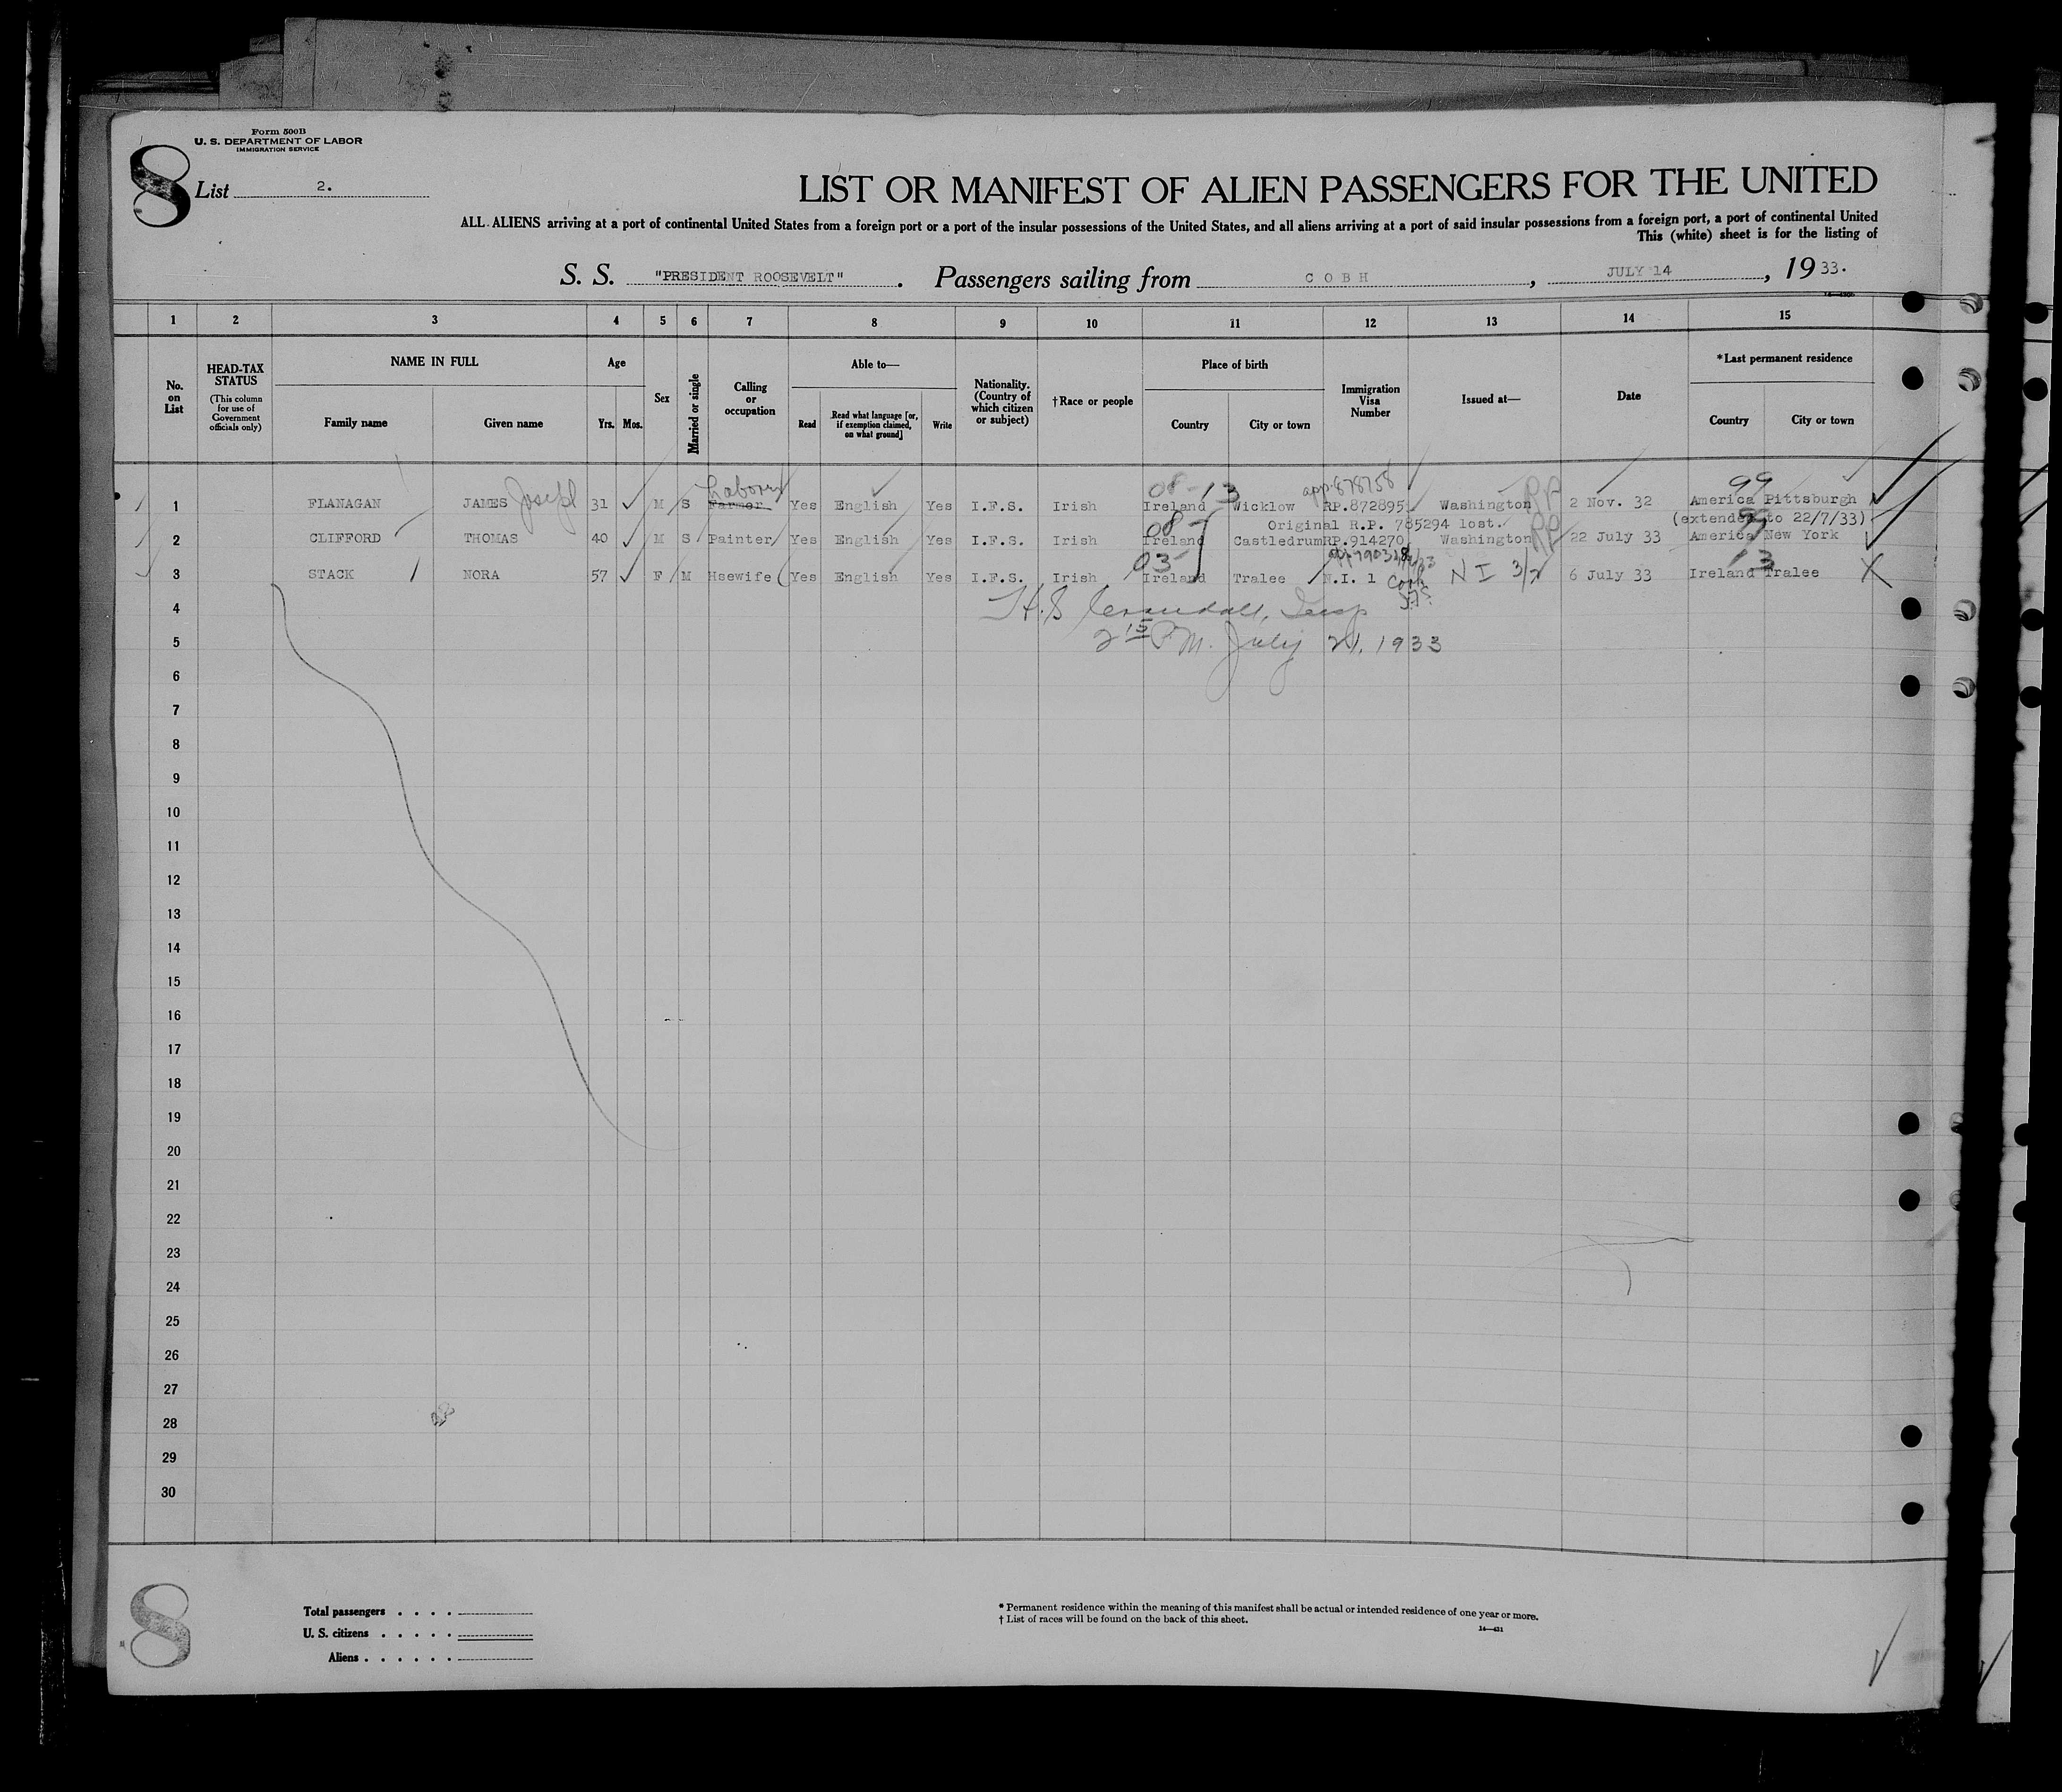 Form 500B
U. S. DEPARTMENT OF LABOR
IMMIGRATION SERVICE
8
List 2.
LIST OR MANIFEST OF ALIEN PASSENGERS FOR THE UNITED
ALL ALIENS arriving at a port of continental United States from a foreign port or a port of the insular possessions of the United States, and all aliens arriving at a port of said insular possessions from a foreign port, a port of continental United
This (white) sheet is for the listing of
S. S. "PRESIDENT ROOSEVELT". Passengers sailing from COBH, JULY 14, 1933.
1 2 3 4 5 6 7 8 9 10 11 12 13 14 15
No. on List
HEAD-TAX STATUS
(This column for use of Government officials only)
NAME IN FULL
Family name Given name
Age
Yrs. Mos.
Sex
Married or single
Calling or occupation
Able to—
Read
Read what language [or, if exemption claimed, on what ground]
Write
Nationality. (Country of which citizen or subject)
†Race or people
Place of birth
Country City or town
Immigration Visa Number
Issued at—
Date
*Last permanent residence
Country City or town
Laborer 08-13 app. 878758 99
1 FLANAGAN JAMES Joseph 31 M S Farmer Yes English Yes I.F.S. Irish Ireland Wicklow RP.872895 Washington RP 2 Nov. 32 America Pittsburgh
Original R.P. 785294 lost. (extended to 22/7/33)
08-7 99
2 CLIFFORD THOMAS 40 M S Painter Yes English Yes I.F.S. Irish Ireland Castledrum RP.914270 Washington RP 22 July 33 America New York
03- 13
3 STACK NORA 57 F M Hsewife Yes English Yes I.F.S. Irish Ireland Tralee N.I. 1 Cobh N I 3/2 6 July 33 Ireland Tralee X
4 H.S. Insp
5 2 15 P.M. July 21, 1933
6
7
8
9
10
11
12
13
14
15
16
17
18
19
20
21
22
23
24
25
26
27
28
29
30
8
Total passengers . . . .
U. S. citizens . . . . .
Aliens . . . . . .
* Permanent residence within the meaning of this manifest shall be actual or intended residence of one year or more.
† List of races will be found on the back of this sheet.
14—431